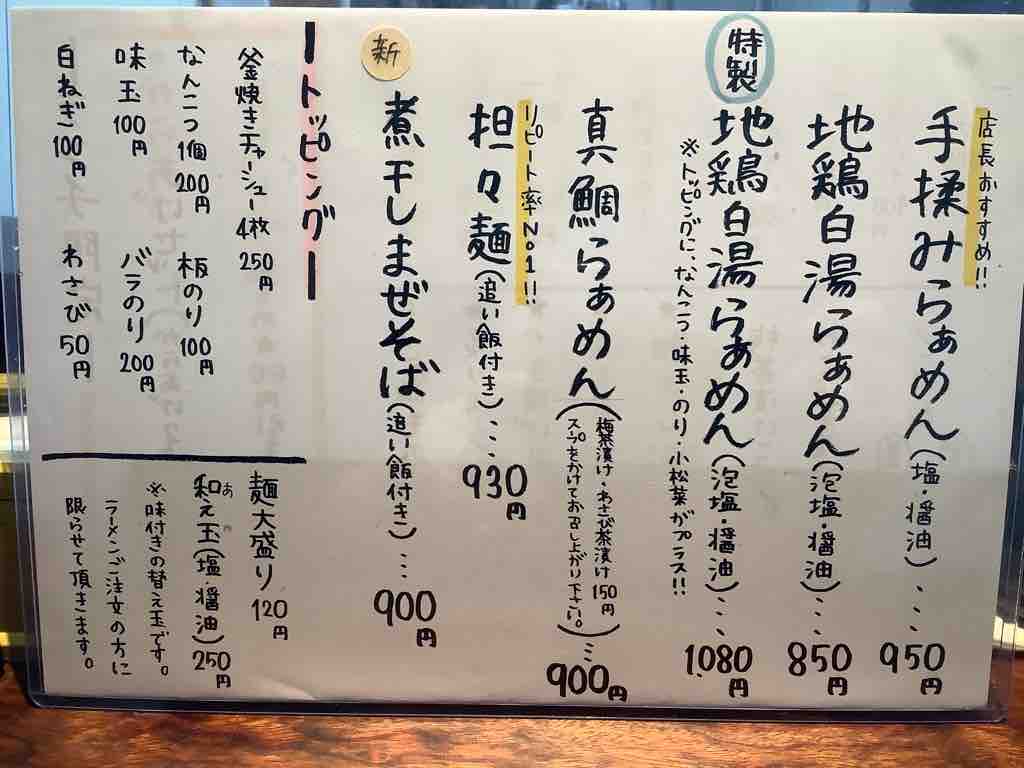 店長おすすめ!!
手揉みらぁめん(塩・醤油)...950円
地鶏白湯らぁめん(泡塩・醤油)...850円
特製
地鶏白湯らぁめん(泡塩・醤油)...1080円
※トッピングに、なんこつ・味玉・のり・小松菜がプラス!!
真鯛らぁめん(梅茶漬け・わさび茶漬け150円
スープをかけてお召し上がり下さい。)...900円
リピート率No1!!
担々麺(追い飯付き)...930円
新
煮干しまぜそば(追い飯付き)...900円
ートッピングー
釜焼きチャーシュー4枚250円
なんこつ1個200円
板のり100円
味玉100円
バラのり200円
白ねぎ100円
わさび50円
麺大盛り120円
和え玉(塩・醤油)250円
あ
※味付きの替え玉です。
ラーメンご注文の方に
限らせて頂きます。